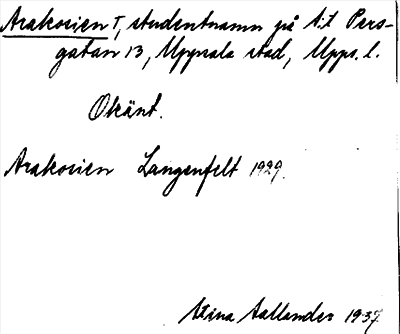 Arakosien T, studentnamn på S:t Pers-
gatan 13, Uppsala stad, Upps. l.
Okänt.
Arakosien Langenfelt 1929.
Stina Aallander 1937